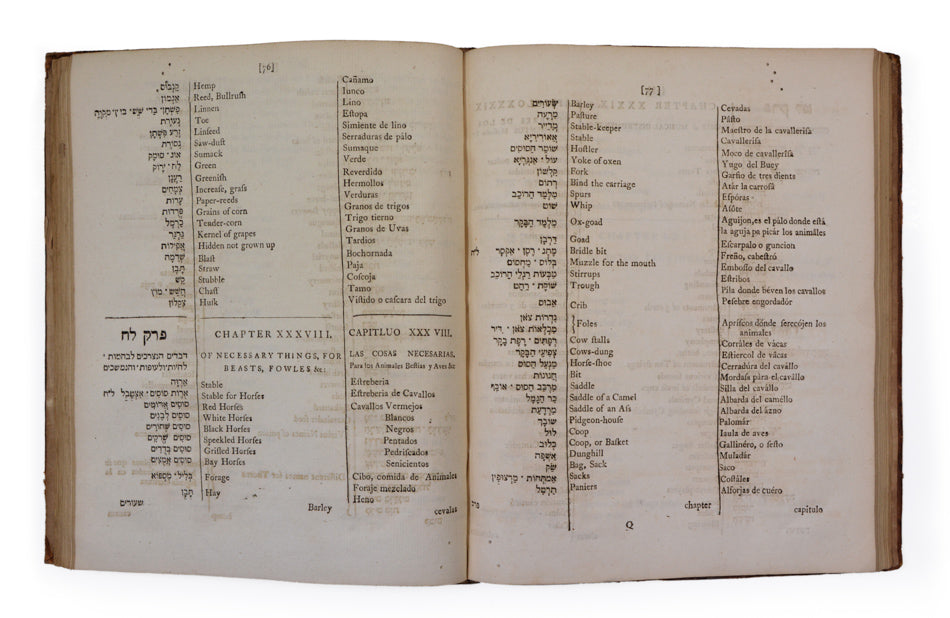 [76]
קַנְבּוֹס Hemp Cañamo
אַגְמוֹן Reed, Bullrush Iunco
Linnen Lino
נְעוֹרֶת Toe Estopa
זֶרַע פִּשְׁתָּן Linseed Simiente de lino
נְסוֹרֶת Saw-dust Serraduras de pálo
אוֹג · סוּמָק Sumack Sumaque
לַח · יָרוֹק Green Verde
רַעֲנָן Greenish Reverdido
צְמָחִים Increase, grass Hermollos
עָרוֹת Paper-reeds Verduras
פְּרֻדוֹת Grains of corn Granos de trigos
כַּרְמֶל Tender-corn Trigo tierno
גַּרְגַּר Kernel of grapes Granos de Uvas
אֲפִילוֹת Hidden not grown up Tardios
שְׁדֵפָה Blast Bochornada
תֶּבֶן Straw Paja
קַשׁ Stubble Coscoja
חֲשַׁשׁ · מוֹץ Chaff Tamo
Husk Vistido o cascara del trigo
פרק לח CHAPTER XXXVIII. CAPITLUO XXX VIII.
דברים הצטרכים לבהמות · OF NECESSARY THINGS, FOR LAS COSAS NECESARIAS.
לחיות ולעופות והנמשכים BEASTS, FOWLES &c: Para los Animales Bestias y Aves &c
אֻרְוָה Stable Estreberia
אֻרְוֹת סוּסִים · אִצְטַבְל לי״ח Stable for Horses Estreberia de Cavallos
סוּסִים אֲדוּמִים Red Horses Cavallos Vermejos
סוּסִים לְבָנִים White Horses Blancos
סוּסִים שְׁחוֹרִים Black Horses Negros
סוּסִים שְׂרֻקִּים Spekled Horses Pentados
סוּסִים בְּרֻדִּים Grisled Horses Pedriscados
סוּסִים אֲמֻצִּים Bay Horses Senicientos
בְּלִיל · מִסְפּוֹא Forage Cibo, comida de Animales
Foraje mezclado
Hay Heno
שעורים Barley cevalas
[77]
שְׂעוֹרִים Barley Cevadas
Pasture Pásto
Stable-keeper Maestro de la cavallerisa
Stable Cavallerisa
שׁוֹמֵר הַסּוּסִים Hostler Moco de cavallerisa
Yoke of oxen Yugo del Buey
קִלְּשׁוֹן Fork Garfio de tres dients
רְתוֹם Bind the carriage Atár la carrosa
מַלְמַד הָרוֹכֵב Spurs Espóras
שׁוֹט Whip Asóte
מַלְמַד הַבָּקָר Ox-goad Aguijon, es el pálo donde está
la aguja pa picár los animáles
דָּרְבָן Goad Escarpalo o guncion
Bridle bit Freño, cabestró
בִּלּוּם · מַחְסוֹם Muzzle for the mouth Embosso del cavallo
Stirrups Estribos
שׁוֹקֶת · רַהַט Trough Pila donde béven los cavallos
אֵבוּס Crib Pesebre engordadór
גְּדֵרוֹת צֹאן
מִכְלְאוֹת צֹאן · דִּיר Foles Apriscos dónde serecójen los
animales
רְפָתִים · רֶפֶת בָּקָר Cow stalls Corráles de vácas
צְפִיעֵי הַבָּקָר Cows-dung Estiercol de vácas
מִנְעַל הַסּוּס Horse-shoe Cerradúra del cavállo
Bit Mordasa pára el cavállo
מֶרְכַּב הַסּוּס · אוּכָּף Saddle Silla del cavallo
כַּר הַגָּמָל Saddle of a Camel Albarda del caméllo
מַרְדַּעַת Saddle of an Ass Albarda del ázno
שׁוֹבָךְ Pidgeon-house Palomár
לוּל Coop Iaula de aves
כְּלוּב Coop, or Basket Gallinéro, o sesto
אַשְׁפָּה Dunghill Muladár
שַׂק Bag, Sack Saco
אַמְתְּחוֹת · מַרְצוּפִין Sacks Costáles
Paniers Alforjas de cuéro
פרק chapter capitulo
Q